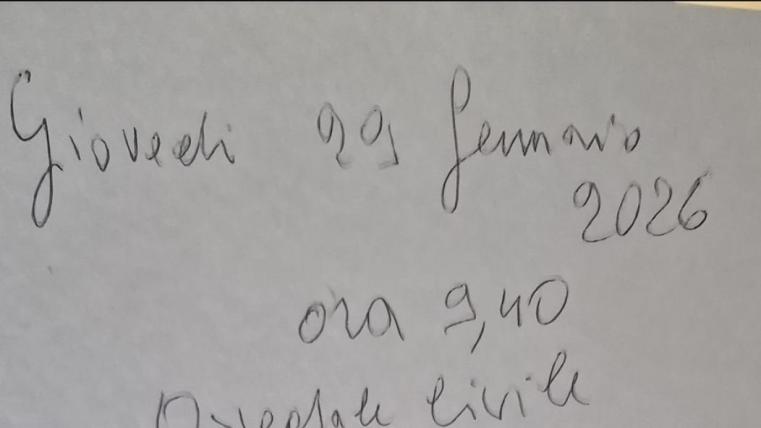 Giovedi 29 Gennaio
2026
ora 9,40
Ospedale Civile